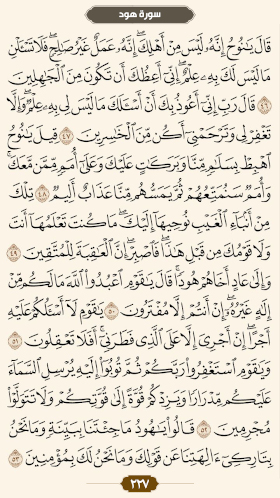 سورة هود
قَالَ يَٰنُوحُ إِنَّهُۥ لَيۡسَ مِنۡ أَهۡلِكَۖ إِنَّهُۥ عَمَلٌ غَيۡرُ صَٰلِحٖۖ فَلَا تَسۡـَٔلۡنِ
مَا لَيۡسَ لَكَ بِهِۦ عِلۡمٌۖ إِنِّيٓ أَعِظُكَ أَن تَكُونَ مِنَ ٱلۡجَٰهِلِينَ
٤٦ قَالَ رَبِّ إِنِّيٓ أَعُوذُ بِكَ أَنۡ أَسۡـَٔلَكَ مَا لَيۡسَ لِي بِهِۦ عِلۡمٞۖ وَإِلَّا
تَغۡفِرۡ لِي وَتَرۡحَمۡنِيٓ أَكُن مِّنَ ٱلۡخَٰسِرِينَ ٤٧ قِيلَ يَٰنُوحُ
ٱهۡبِطۡ بِسَلَٰمٖ مِّنَّا وَبَرَكَٰتٍ عَلَيۡكَ وَعَلَىٰٓ أُمَمٖ مِّمَّن مَّعَكَۚ
وَأُمَمٞ سَنُمَتِّعُهُمۡ ثُمَّ يَمَسُّهُم مِّنَّا عَذَابٌ أَلِيمٞ ٤٨ تِلۡكَ
مِنۡ أَنۢبَآءِ ٱلۡغَيۡبِ نُوحِيهَآ إِلَيۡكَۖ مَا كُنتَ تَعۡلَمُهَآ أَنتَ
وَلَا قَوۡمُكَ مِن قَبۡلِ هَٰذَاۖ فَٱصۡبِرۡۖ إِنَّ ٱلۡعَٰقِبَةَ لِلۡمُتَّقِينَ ٤٩
وَإِلَىٰ عَادٍ أَخَاهُمۡ هُودٗاۚ قَالَ يَٰقَوۡمِ ٱعۡبُدُواْ ٱللَّهَ مَا لَكُم مِّنۡ
إِلَٰهٍ غَيۡرُهُۥٓۖ إِنۡ أَنتُمۡ إِلَّا مُفۡتَرُونَ ٥٠ يَٰقَوۡمِ لَآ أَسۡـَٔلُكُمۡ عَلَيۡهِ
أَجۡرًاۖ إِنۡ أَجۡرِيَ إِلَّا عَلَى ٱلَّذِي فَطَرَنِيٓۚ أَفَلَا تَعۡقِلُونَ ٥١
وَيَٰقَوۡمِ ٱسۡتَغۡفِرُواْ رَبَّكُمۡ ثُمَّ تُوبُوٓاْ إِلَيۡهِ يُرۡسِلِ ٱلسَّمَآءَ
عَلَيۡكُم مِّدۡرَارٗا وَيَزِدۡكُمۡ قُوَّةً إِلَىٰ قُوَّتِكُمۡ وَلَا تَتَوَلَّوۡاْ
مُجۡرِمِينَ ٥٢ قَالُواْ يَٰهُودُ مَا جِئۡتَنَا بِبَيِّنَةٖ وَمَا نَحۡنُ
بِتَارِكِيٓ ءَالِهَتِنَا عَن قَوۡلِكَ وَمَا نَحۡنُ لَكَ بِمُؤۡمِنِينَ ٥٣
٢٢٧